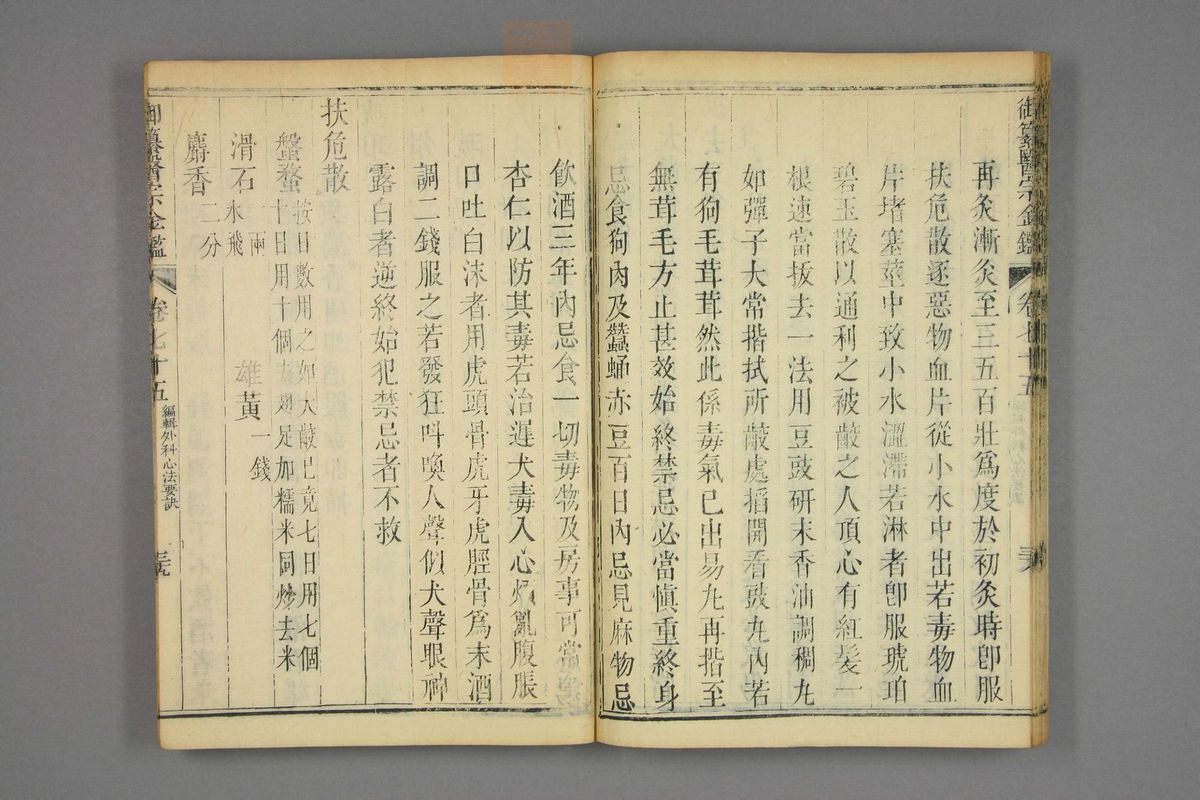 御纂醫宗金鑑 卷七十五
再灸漸灸至三五百壯爲度於初灸時卽服
扶危散逐惡物血片從小水中出若毒物血
片堵塞莖中致小水澀滯若淋者卽服琥珀
碧玉散以通利之被齩之人頂心有紅髮一
根速當拔去一法用豆豉研末香油調稠丸
如彈子大常揩拭所齩處掐開看豉丸內若
有狗毛茸茸然此係毒氣已出易丸再揩至
無茸毛方止甚效始終禁忌必當愼重終身
忌食狗肉及蠶蛹赤豆百日內忌見麻物忌
飲酒三年內忌食一切毒物及房事可常
杏仁以防其毒若治遲犬毒入心煩亂腹脹
口吐白沫者用虎頭骨虎牙虎脛骨爲末酒
調二錢服之若發狂叫喚人聲似犬聲眼神
露白者逆終始犯禁忌者不救
扶危散
螌蝥 按日數用之如犬齩已竟七日用七個
十日用十個去翅足加糯米同炒去米
滑石 水飛 一兩 雄黃 一錢
麝香 二分
御纂醫宗金鑑 卷七十五 編輯外科心法要訣 三九